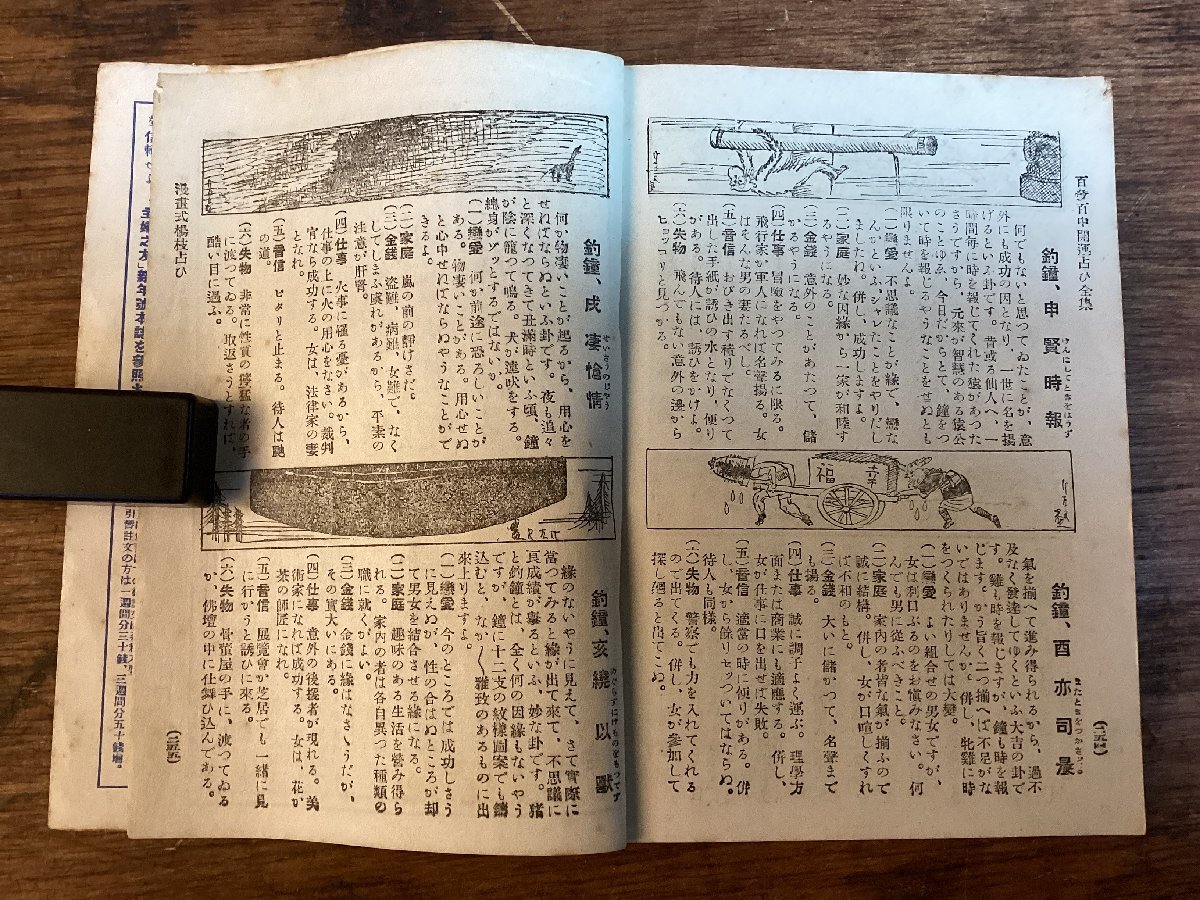 百發百中開運占ひ全集
釣鐘、申 賢時報
何でもないと思つてゐたことが、意
外にも成功の因となり、一世に名を揚
げるといふ卦です。昔或る仙人へ、一
時間毎に時を報じてくれた猿があつた
さうですから、元來が智慧のある猿公
のことゆゑ、今日だからとて、鐘をつ
いて時を報じるやうなことをせぬとも
限りませんよ。
(一)戀愛 不思議なことが緣で、變な
んかといふ、シャレたことをやりだし
ましたね。併し、成功しますよ。
(二)家庭 妙な因緣から一家が和睦す
るやうになる。
(三)金錢 意外のことがあたつて、儲
かるやうになる。
(四)仕事 冒險をやつてみるに限る。
飛行家か軍人になれば名聲揚る。女
はそんな男の妻たるべし。
(五)音信 おびき出す積りでなくつて
出した手紙が誘ひの水となり、便り
がある。待人には、誘ひをかけよ。
(六)失物 飛んでもない意外の邊から
ヒョッコリと見つかる。
幸福
釣鐘、酉 亦司晨
氣を揃へて進み得られるから、過不
及なく發達してゆくといふ大吉の卦で
す。雞も時を報じますが、鐘も時を報
じます。かう旨く二つ揃へば不足がな
いではありませんか。併し、牝雞に時
をつくられたりしては大變。
(一)戀愛 よい組合せの男女ですが、
女は利口ぶるのをお愼みなさい。何
んでも男に從ふべきこと。
(二)家庭 家内の者皆な氣が揃ふので
誠に結構。併し、女が口喧しくすれ
ば不和のもと。
(三)金錢 大いに儲かつて、名聲まで
も揚る。
(四)仕事 誠に調子よく運ぶ。理學方
面または商業にも適應する。併し、
女が仕事に口を出せば失敗。
(五)音信 適當の時に便りがある。併
し、女から餘りせッついてはならぬ。
待人も同樣。
(六)失物 警察でも力を入れてくれる
ので出てくる。併し、女が參加して
探し廻ると出てこぬ。
(二五四)
釣鐘、戌 凄愴情
何か物凄いことが起るから、用心を
せねばならぬといふ卦です。夜も追々
と深くなつてきて丑滿時といふ頃、鐘
が陰に籠つて鳴る。犬が遠吠をする。
總身がゾッとするではないか。
(一)戀愛 何か前途に恐ろしいことが
ある。物凄いことがある。用心せぬ
と心中せねばならぬやうなことがで
きるよ。
(二)家庭 嵐の前の靜けさだ。
(三)金錢 盜難、病難、女難で、なく
してしまふ虞れがあるから、平素の
注意が肝腎。
(四)仕事 火事に罹る憂があるから、
仕事の上に火の用心をなさい。裁判
官なら成功する。女は、法律家の妻
となれ。
(五)音信 ピタリと止まる。待人は駄
の道。
(六)失物 非常に性質の獰猛な者の手
に渡つてゐる。取返さうとすれば、
酷い目に遇ふ。
漫畫式楊枝占ひ
釣鐘、亥 繞以獸
緣のないやうに見えて、さて實際に
當つてみると緣が出て來て、不思議に
良成績が擧るといふ、妙な卦です。猪
と釣鐘とは、全く何の因緣もないやう
ですが、鐘に十二支の紋樣圖案でも鑄
込むと、なか〳〵雅致のあるものに出
來上りますよ。
(一)戀愛 今のところでは成功しさう
に見えぬが、性の合はぬところが却
て男女を結合させる緣になる。
(二)家庭 趣味のある生活を營み得ら
れる。家内の者は各自異つた種類の
職に就くがよい。
(三)金錢 金錢に緣はなささうだが、
その實大いにある。
(四)仕事 意外の後援者が現れる。美
術家になれば成功する。女は、花か
茶の師匠になれ。
(五)音信 展覽會か芝居でも一緒に見
に行かうと誘ひに來る。
(六)失物 骨董屋の手に、渡つてゐる
か、佛壇の中に仕舞ひ込んである。
(二五五)